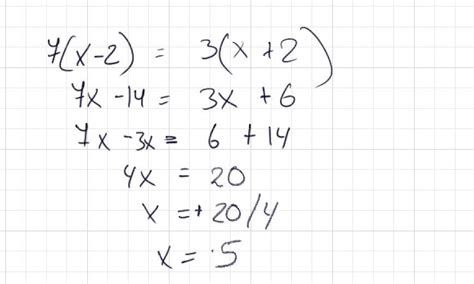 7(x-2) = 3(x+2)
7x -14 = 3x +6
7x -3x = 6 +14
4x = 20
x =+ 20/4
x = .5